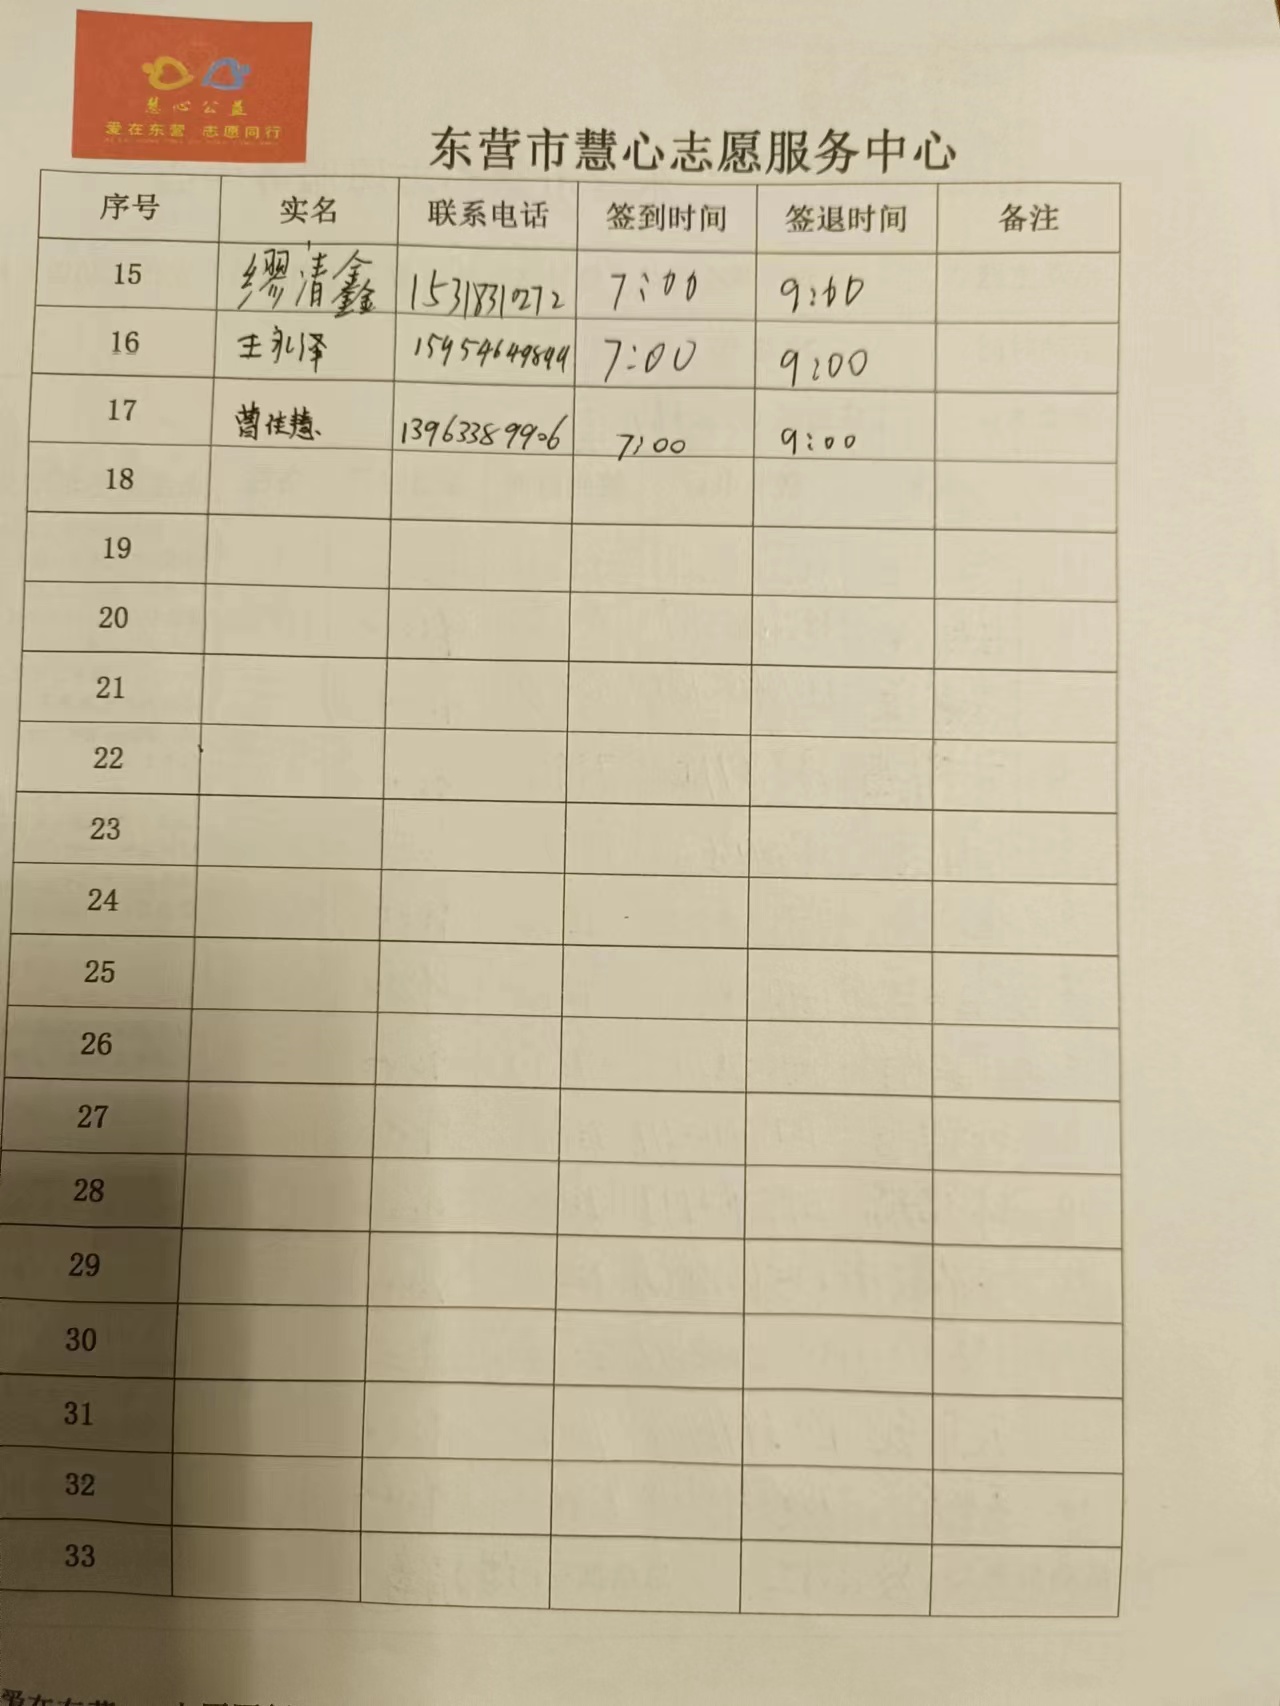 慧心公益
爱在东营 志愿同行
东营市慧心志愿服务中心
序号 实名 联系电话 签到时间 签退时间 备注
15 缪清鑫 15318310272 7:00 9:00
16 王永泽 15954649844 7:00 9:00
17 曹佳慧 13963389906 7:00 9:00
18
19
20
21
22
23
24
25
26
27
28
29
30
31
32
33